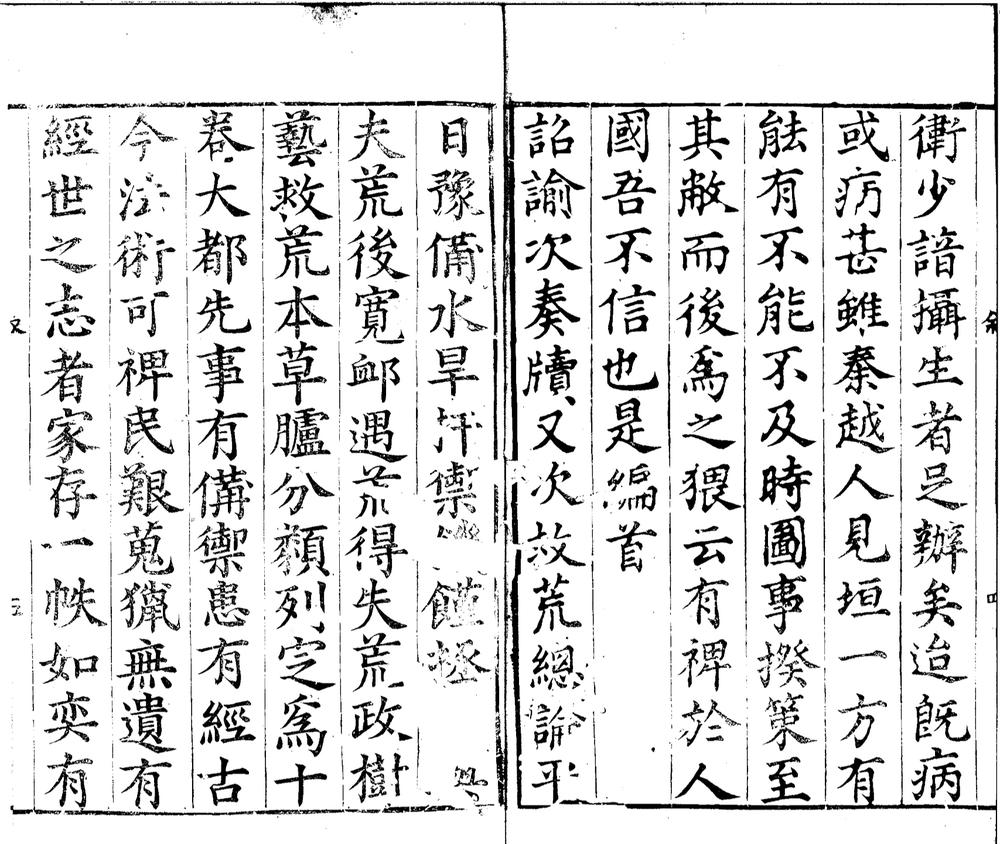 衛少諳攝生者足辦矣迨旣病
或病甚雖秦越人見垣一方有
能有不能不及時圖事揆策至
其敝而後爲之猥云有裨於人
國吾不信也是編首
詔諭次奏牘又次故荒總論平
日豫備水旱扞禦饉拯
夫荒後寬卹遇荒得失荒政樹
藝救荒本草臚分類列定爲十
卷大都先事有備禦患有經古
今法術可裨民艱蒐獵無遺有
經世之志者家存一帙如奕有
四